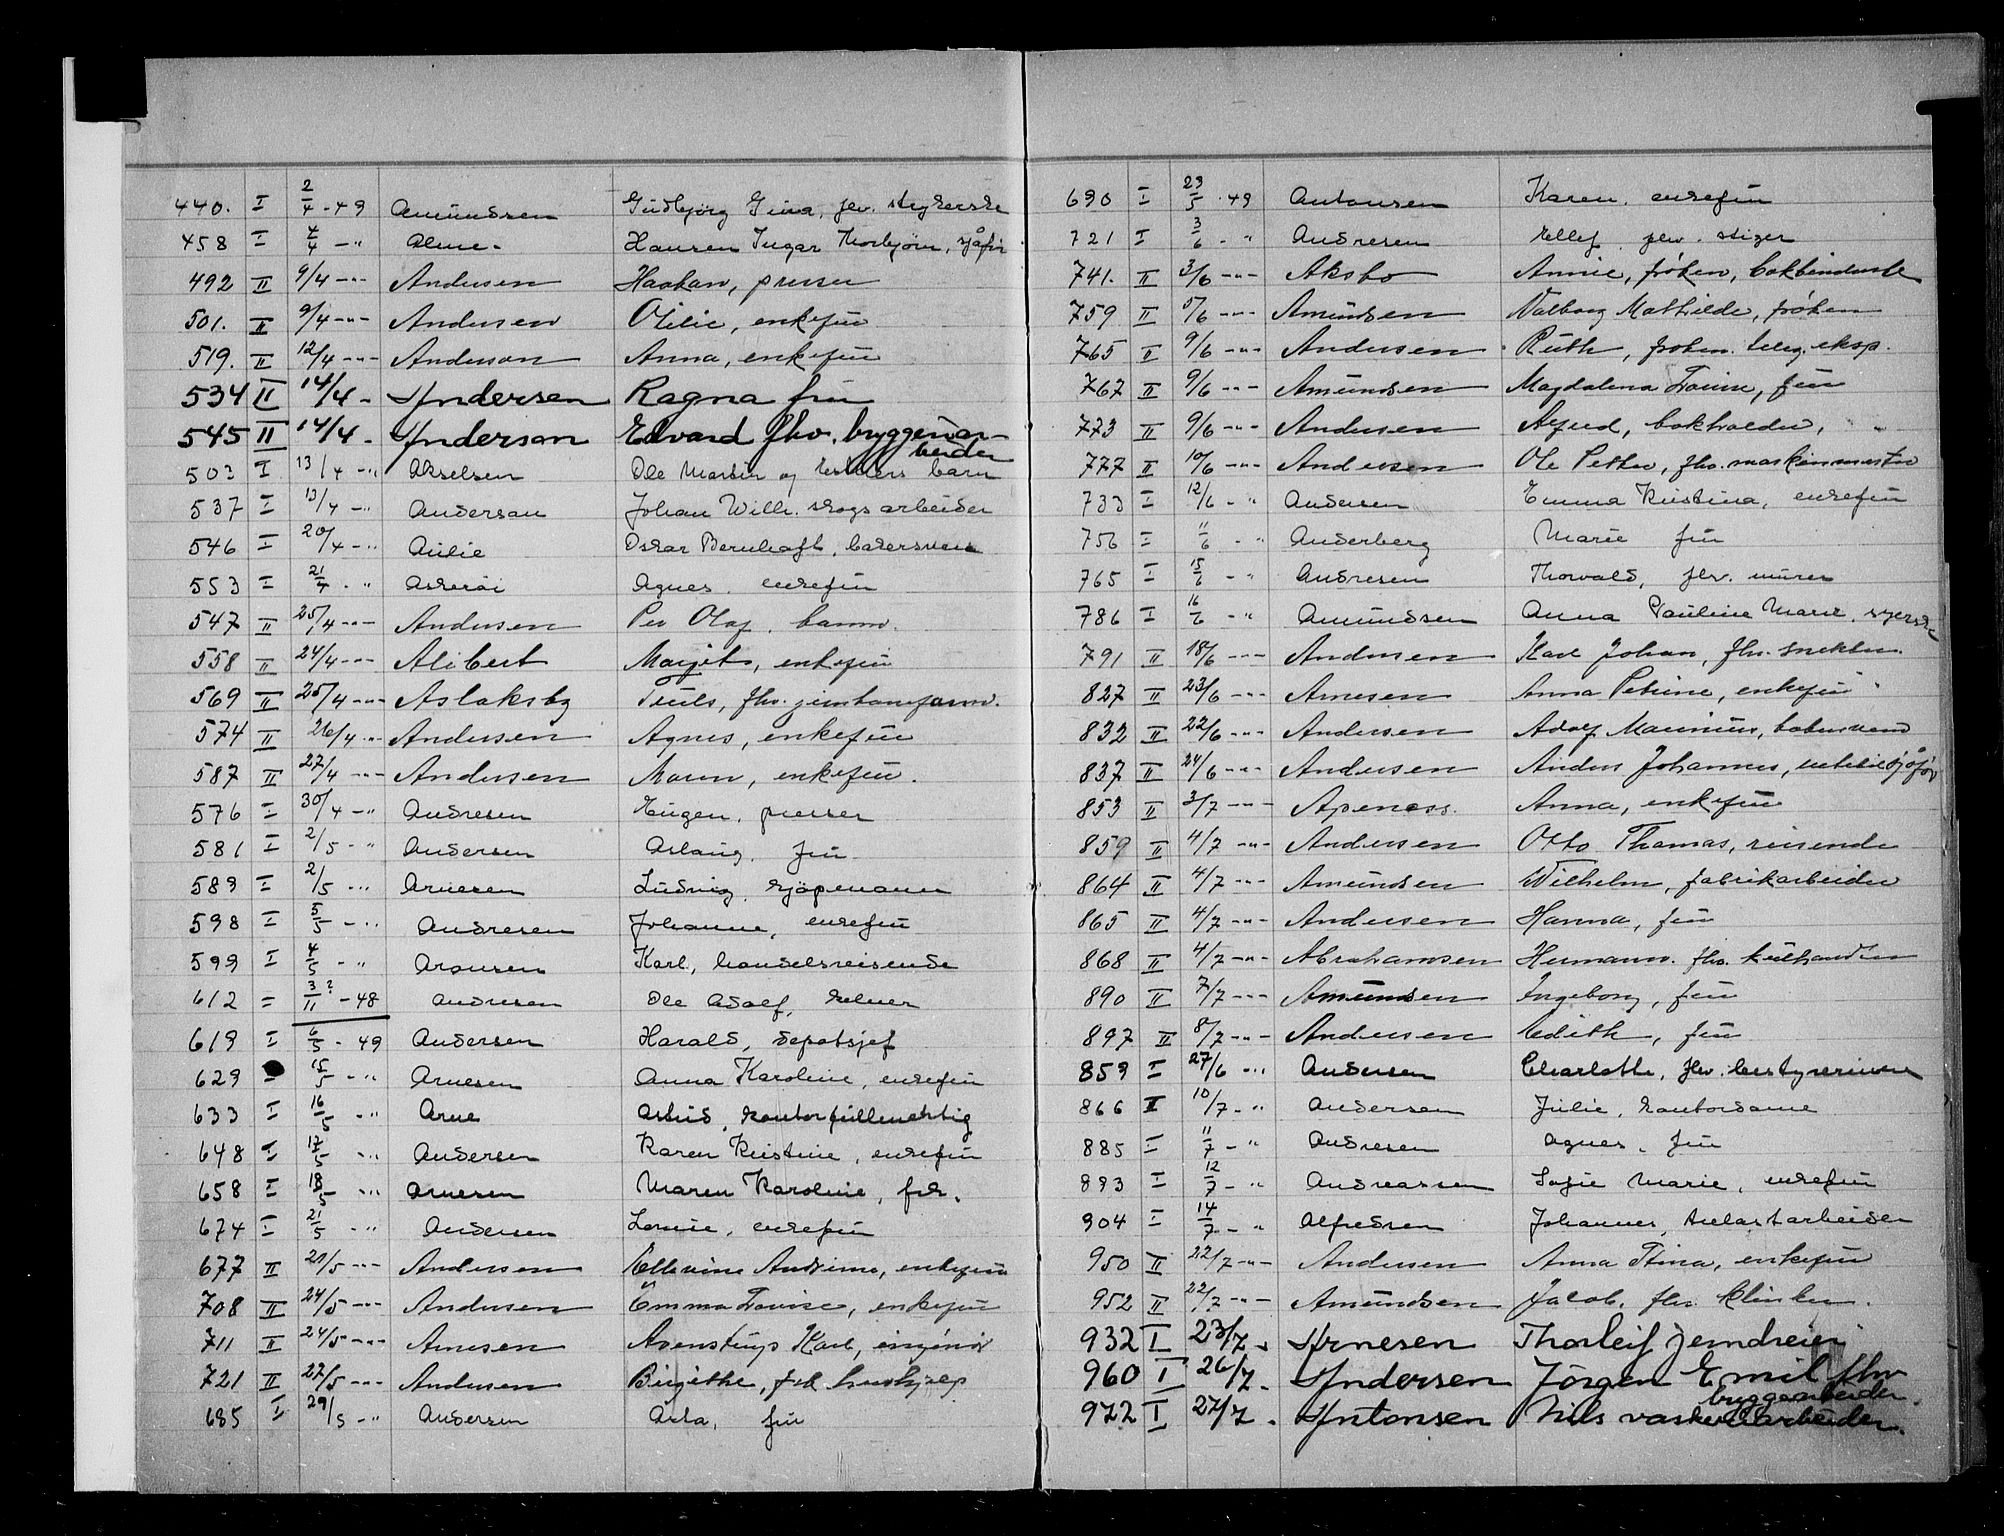 440. I 2/4 - 49 Amundsen Gudbjørg Gina, fhv. strykerske
458 I 4/4 - " Alme - Hansen Ingar Thorbjørn, sjåfør
492 II 9/4 - " - Andersen Haakon, presser
501. II 9/4 - " - Andersen Otilie, enkefru
519. II 12/4 - " - Anderson Anna, enkefru
534 II 14/4 - Andersen Ragna fru
545 II 14/4 - Anderson Edvard fhv. bryggeriar-
beider
503 I 13/4 - " Akselsen Ole Martin og Esthers barn
537 I 13/4 - " Anderson Johan Wilh. skogsarbeider
546 I 20/4 - " Aulie Oskar Bernhoft, bakersvenn
553 I 21/4 - " Askerøi Agnes. enkefru
547 II 25/4 - " - Andersen Per Olaf, barn.
558 II 24/4 - " - Alibert Margit, enkefru
569 II 25/4 - " - Aslaksby Truls, fhv. jernbaneform.
574 II 26/4 - " Andersen Agnes, enkefru
587 II 27/4 - " - Andersen Maren, enkefru.
576 I 30/4 - " Andresen Eugen, presser
581 I 2/5 - " Andersen Aslaug, fru
589 I 2/5 - " Arnesen Ludvig, kjøpmann
598 I 5/5 - " Andresen Johanne, enkefru
599 I 4/5 - " Aronsen Karl, handelsreisende
612 = 3/11 ? - 48 Andresen Ole Adolf, kelner
619 I 6/5 - 49 Andersen Harald, depotsjef
629 I 15/5 - " Arnesen Anna Karoline, enkefru
633 I 16/5 - " Arne Astrid, kontorfullmektig
648 I 17/5 " Andersen Karen Kristine, enkefru
658 I 18/5 " Arnesen Maren Karoline, frk.
674 I 21/5 " Andersen Lovise, enkefru
677 II 21/5 - " - Andersen Ellevine Andrine, enkefru
708 II 24/5 - " - Andersen Emma Lovise, enkefru
711 II 24/5 - " - Arnesen Avenstrup Karl, ingeniør
721 II 27/5 - " - Andersen Birgithe, frk. hushjelp
685 I 29/5 - " Andersen Asta, fru
690 I 29/5 - 49 Antonsen Karen, enkefru
721 I 3/6 - " Andresen Ellef, fhv. stiger
741. II 3/6 - " - Aksbo Annie, frøken, bokbinderske
759 II 5/6 - " - Amundsen Valborg Mathilde, frøken
765 II 9/6 - " - Andersen Ruth, frøken. teleg. eksp.
767 II 9/6 - " - Amundsen Magdalena Lovise, fru
773 II 9/6 - " - Andersen Asfred, bokholder,
777 II 10/6 - " - Andersen Ole Petter, fhv. maskinmester
733 I 12/6 - " Andersen Emma Kristina, enkefru
756 I 11/6 - " Anderberg Marie fru
765 I 15/6 - " Andresen Thorvald, fhv. murer
786 I 16/6 - " Amundsen Anna Pauline Marie, syerske
791 II 18/6 - " - Andersen Karl Johan, fhv. snekker.
827 II 23/6 - " - Arnesen Anna Petrine, enkefru
832 II 22/6 - " - Andersen Adolf Maurinius, bakersvenn
837 II 24/6 - " - Andersen Anders Johannes, lastebilsjåfør
853 II 3/7 - " - Apeness. Anna, enkefru
859 II 4/7 - " - Andersen Otto Thomas, reisende
864 II 4/7 - " - Amundsen Wilhelm, fabrikarbeider
865 II 4/7 - " - Andersen Hanna, fru
868 II 4/7 - " - Abrahamsen Hermann. fhv. kulhandler
890 II 7/7 - " - Amundsen Ingeborg, fru
897 II 8/7 - " - Andersen Edith, fru
859 I 27/6 - " Andersen Charlotte, fhv. bestyrerinne
866 I 10/7 - " Andersen Julie, kontordame
885 I 11/7 - " Andresen Agnes, fru
893 I 12/7 - " Andreassen Sofie Marie, enkefru
904 I 14/7 - " Alfredsen Johannes, anlastarbeider
950 II 22/7 - " - Andersen Anna Stina, enkefru
952 II 22/7 - " - Amundsen Jacob, fhv. klinker.
932 I 23/7 - Arnesen Thorleif jerndreier
960 I 26/7 - Andersen Jørgen Emil fhv
bryggearbeider.
972 I 27/7 - Antonsen Nils vaskeriarbeider.